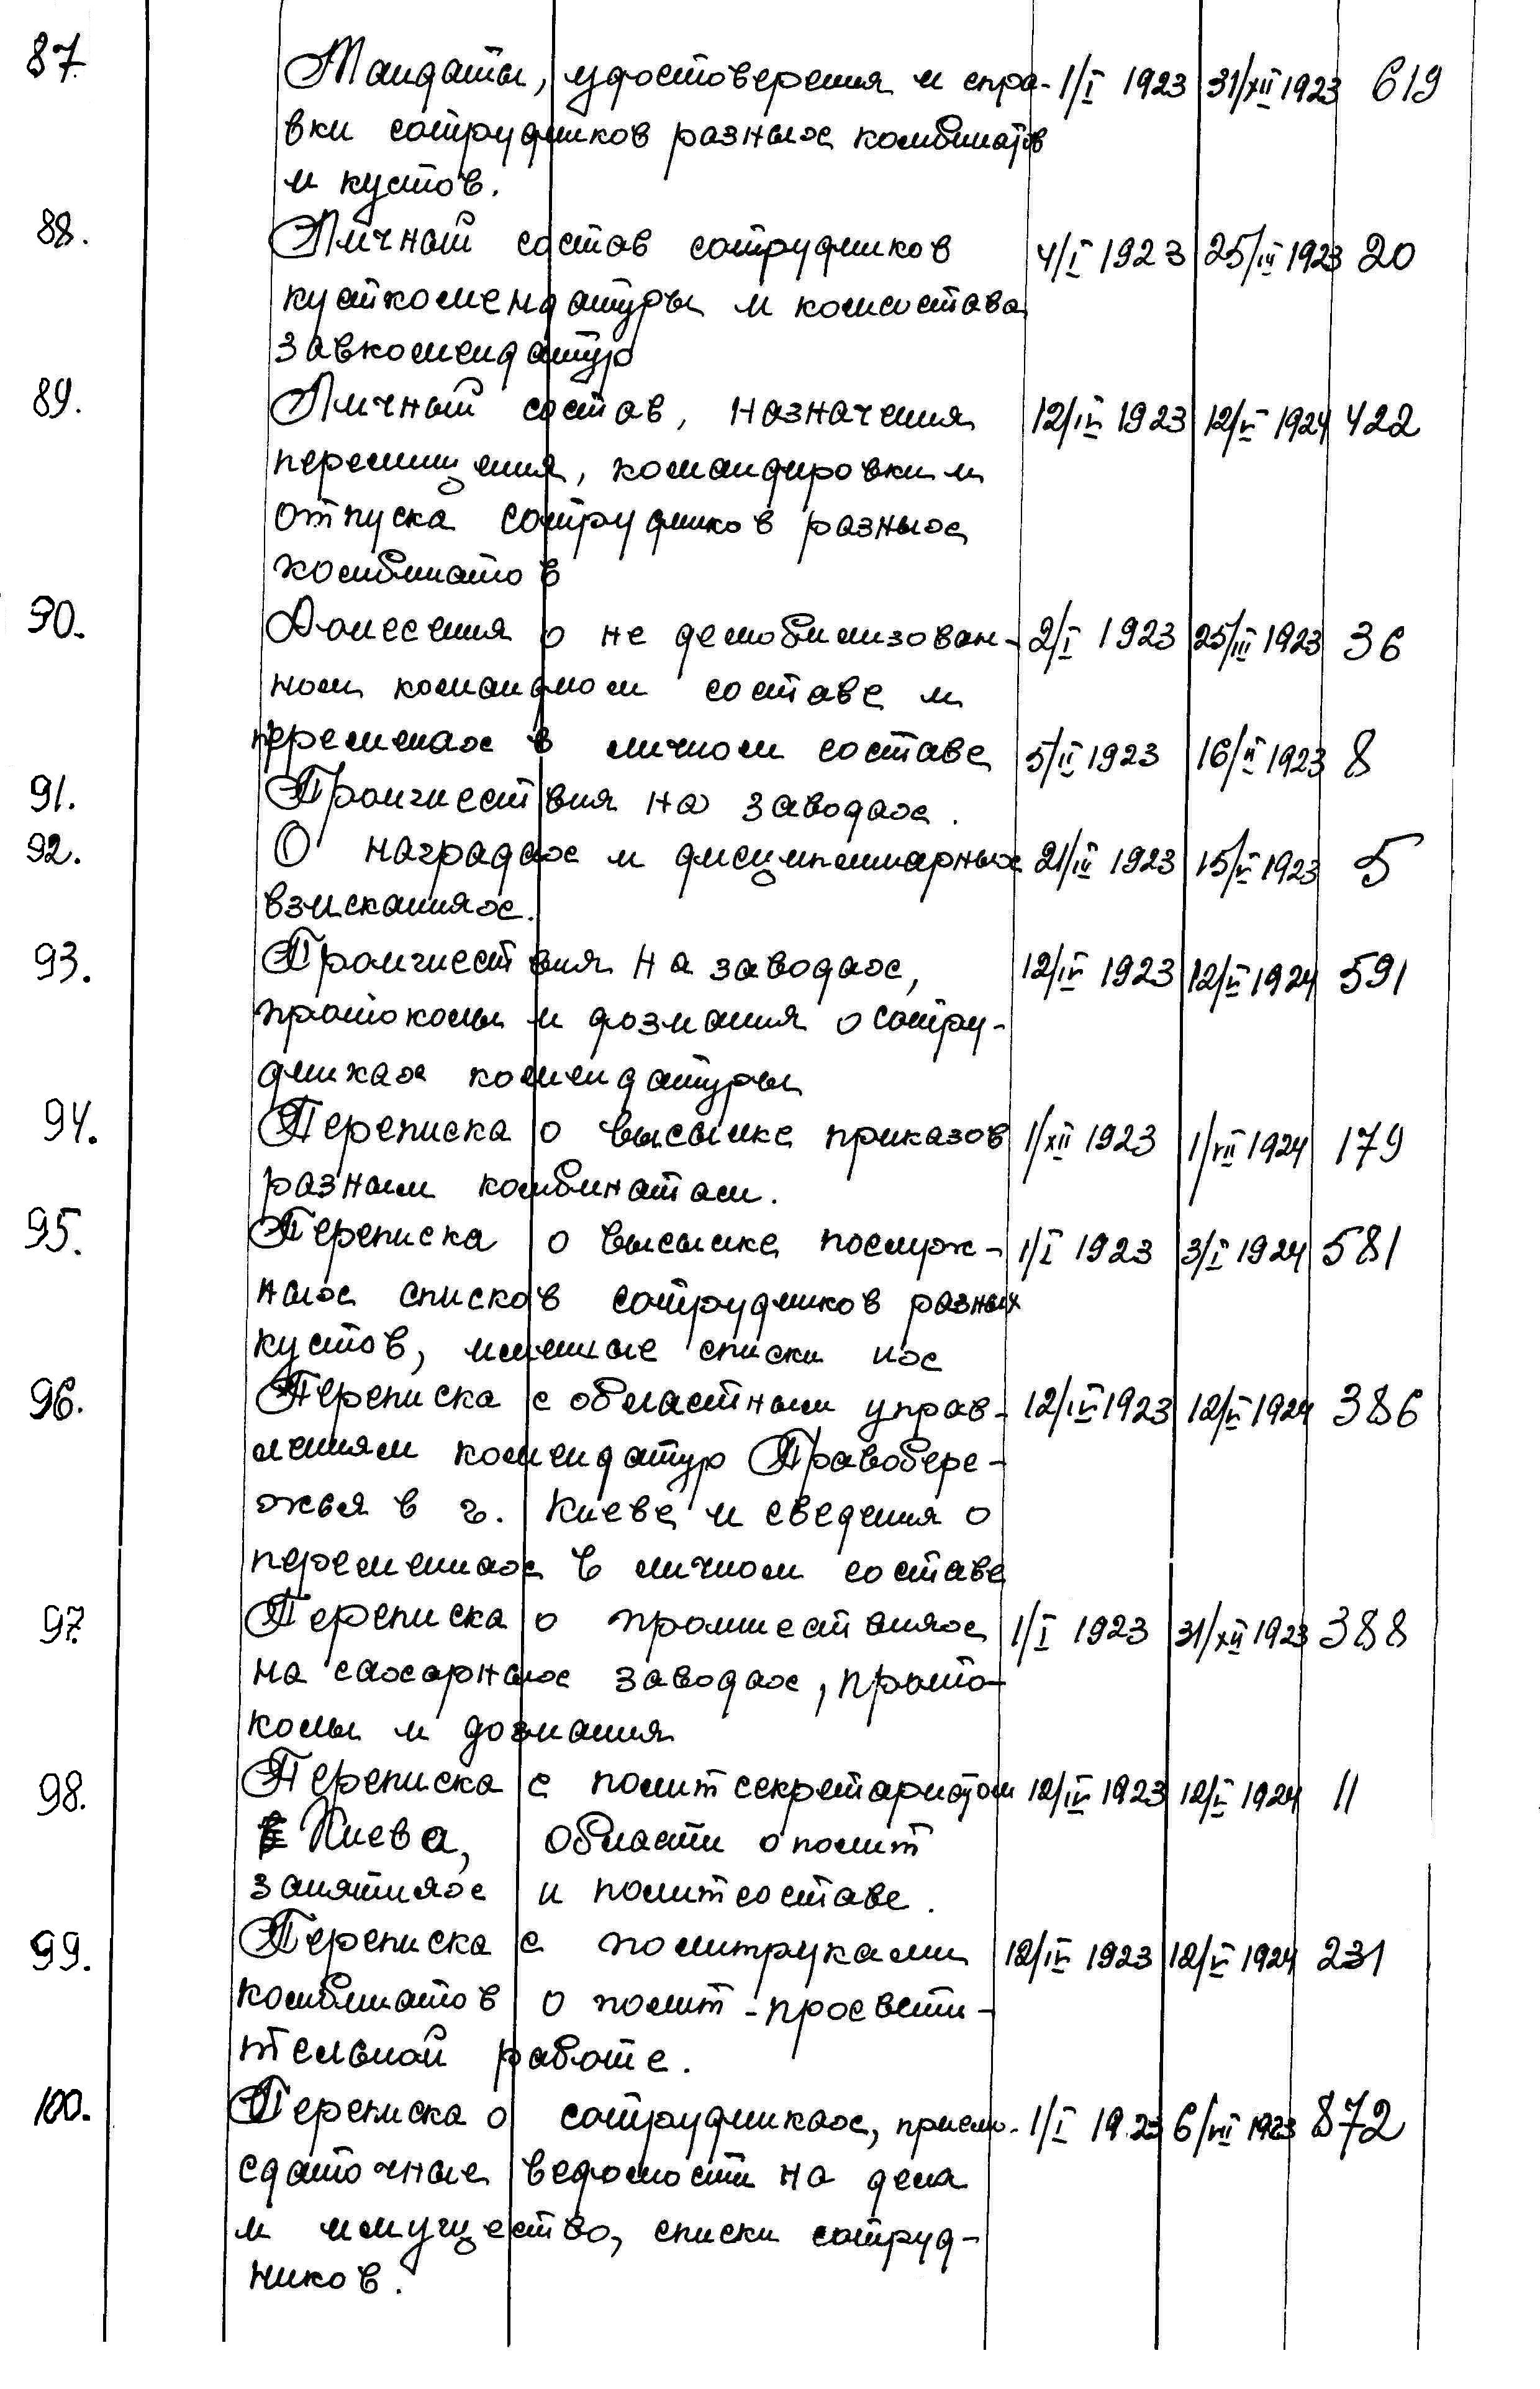 87. Мандаты, удостоверения и спра- 1/I 1923 31/XII 1923 619
вки сотрудников разных комбинатов
и кустов.
88. Личный состав сотрудников 4/I 1923 25/III 1923 20
кусткомендатуры и комсостава
завкомендатур
89. Личный состав, назначения 12/IV 1923 12/V 1924 422
перемищения, командировки и
отпуска сотрудников разных
комбинатов
90. Донесения о не демобилизован- 2/I 1923 25/III 1923 36
ном командном составе и
переменах в личном составе
91. Происшествия на заводах. 5/II 1923 16/II 1923 8
92. О наградах и дисциплинарных 21/III 1923 15/V 1923 5
взысканиях.
93. Происшествия на заводах, 12/IV 1923 12/V 1924 591
протоколы и дознания о сотру-
дниках комендатуры
94. Переписка о высылке приказов 1/XII 1923 1/VII 1924 179
разным комбинатам.
95. Переписка о высылке послуж- 1/I 1923 3/I 1924 581
ных списков сотрудников разных
кустов, именные списки их
96. Переписка с областным управ- 12/IV 1923 12/V 1924 386
лениям комендатур Правобере-
жья в г. Киеве и сведения о
переменах в личном составе
97. Переписка о происшествиях 1/I 1923 31/XII 1923 388
на сахарных заводах, прото-
колы и дознания
98. Переписка с политсекретариатом 12/IV 1923 12/V 1924 11
Киева, области о полит
занятиях и политсоставе.
99. Переписка с политруками 12/IV 1923 12/V 1924 231
комбинатов о полит-просвети-
тельной работе.
100. Переписка о сотрудниках, приемо- 1/I 1923 6/VII 1923 872
сдаточные ведомости на дела
и имущество, списки сотруд-
ников.